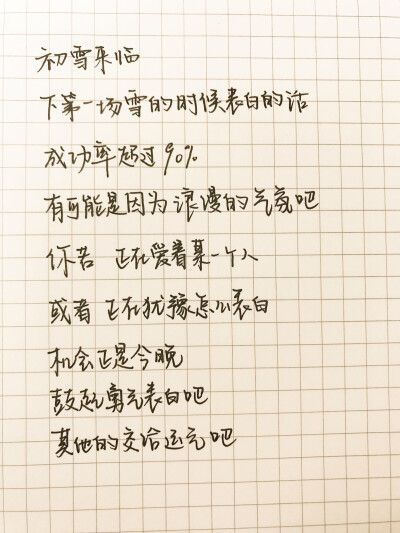 初雪来临
下第一场雪的时候表白的话
成功率超过90%
有可能是因为浪漫的气氛吧
你若 正在爱着某一个人
或者 正在犹豫怎么表白
机会正是今晚
鼓起勇气表白吧
其他的交给运气吧